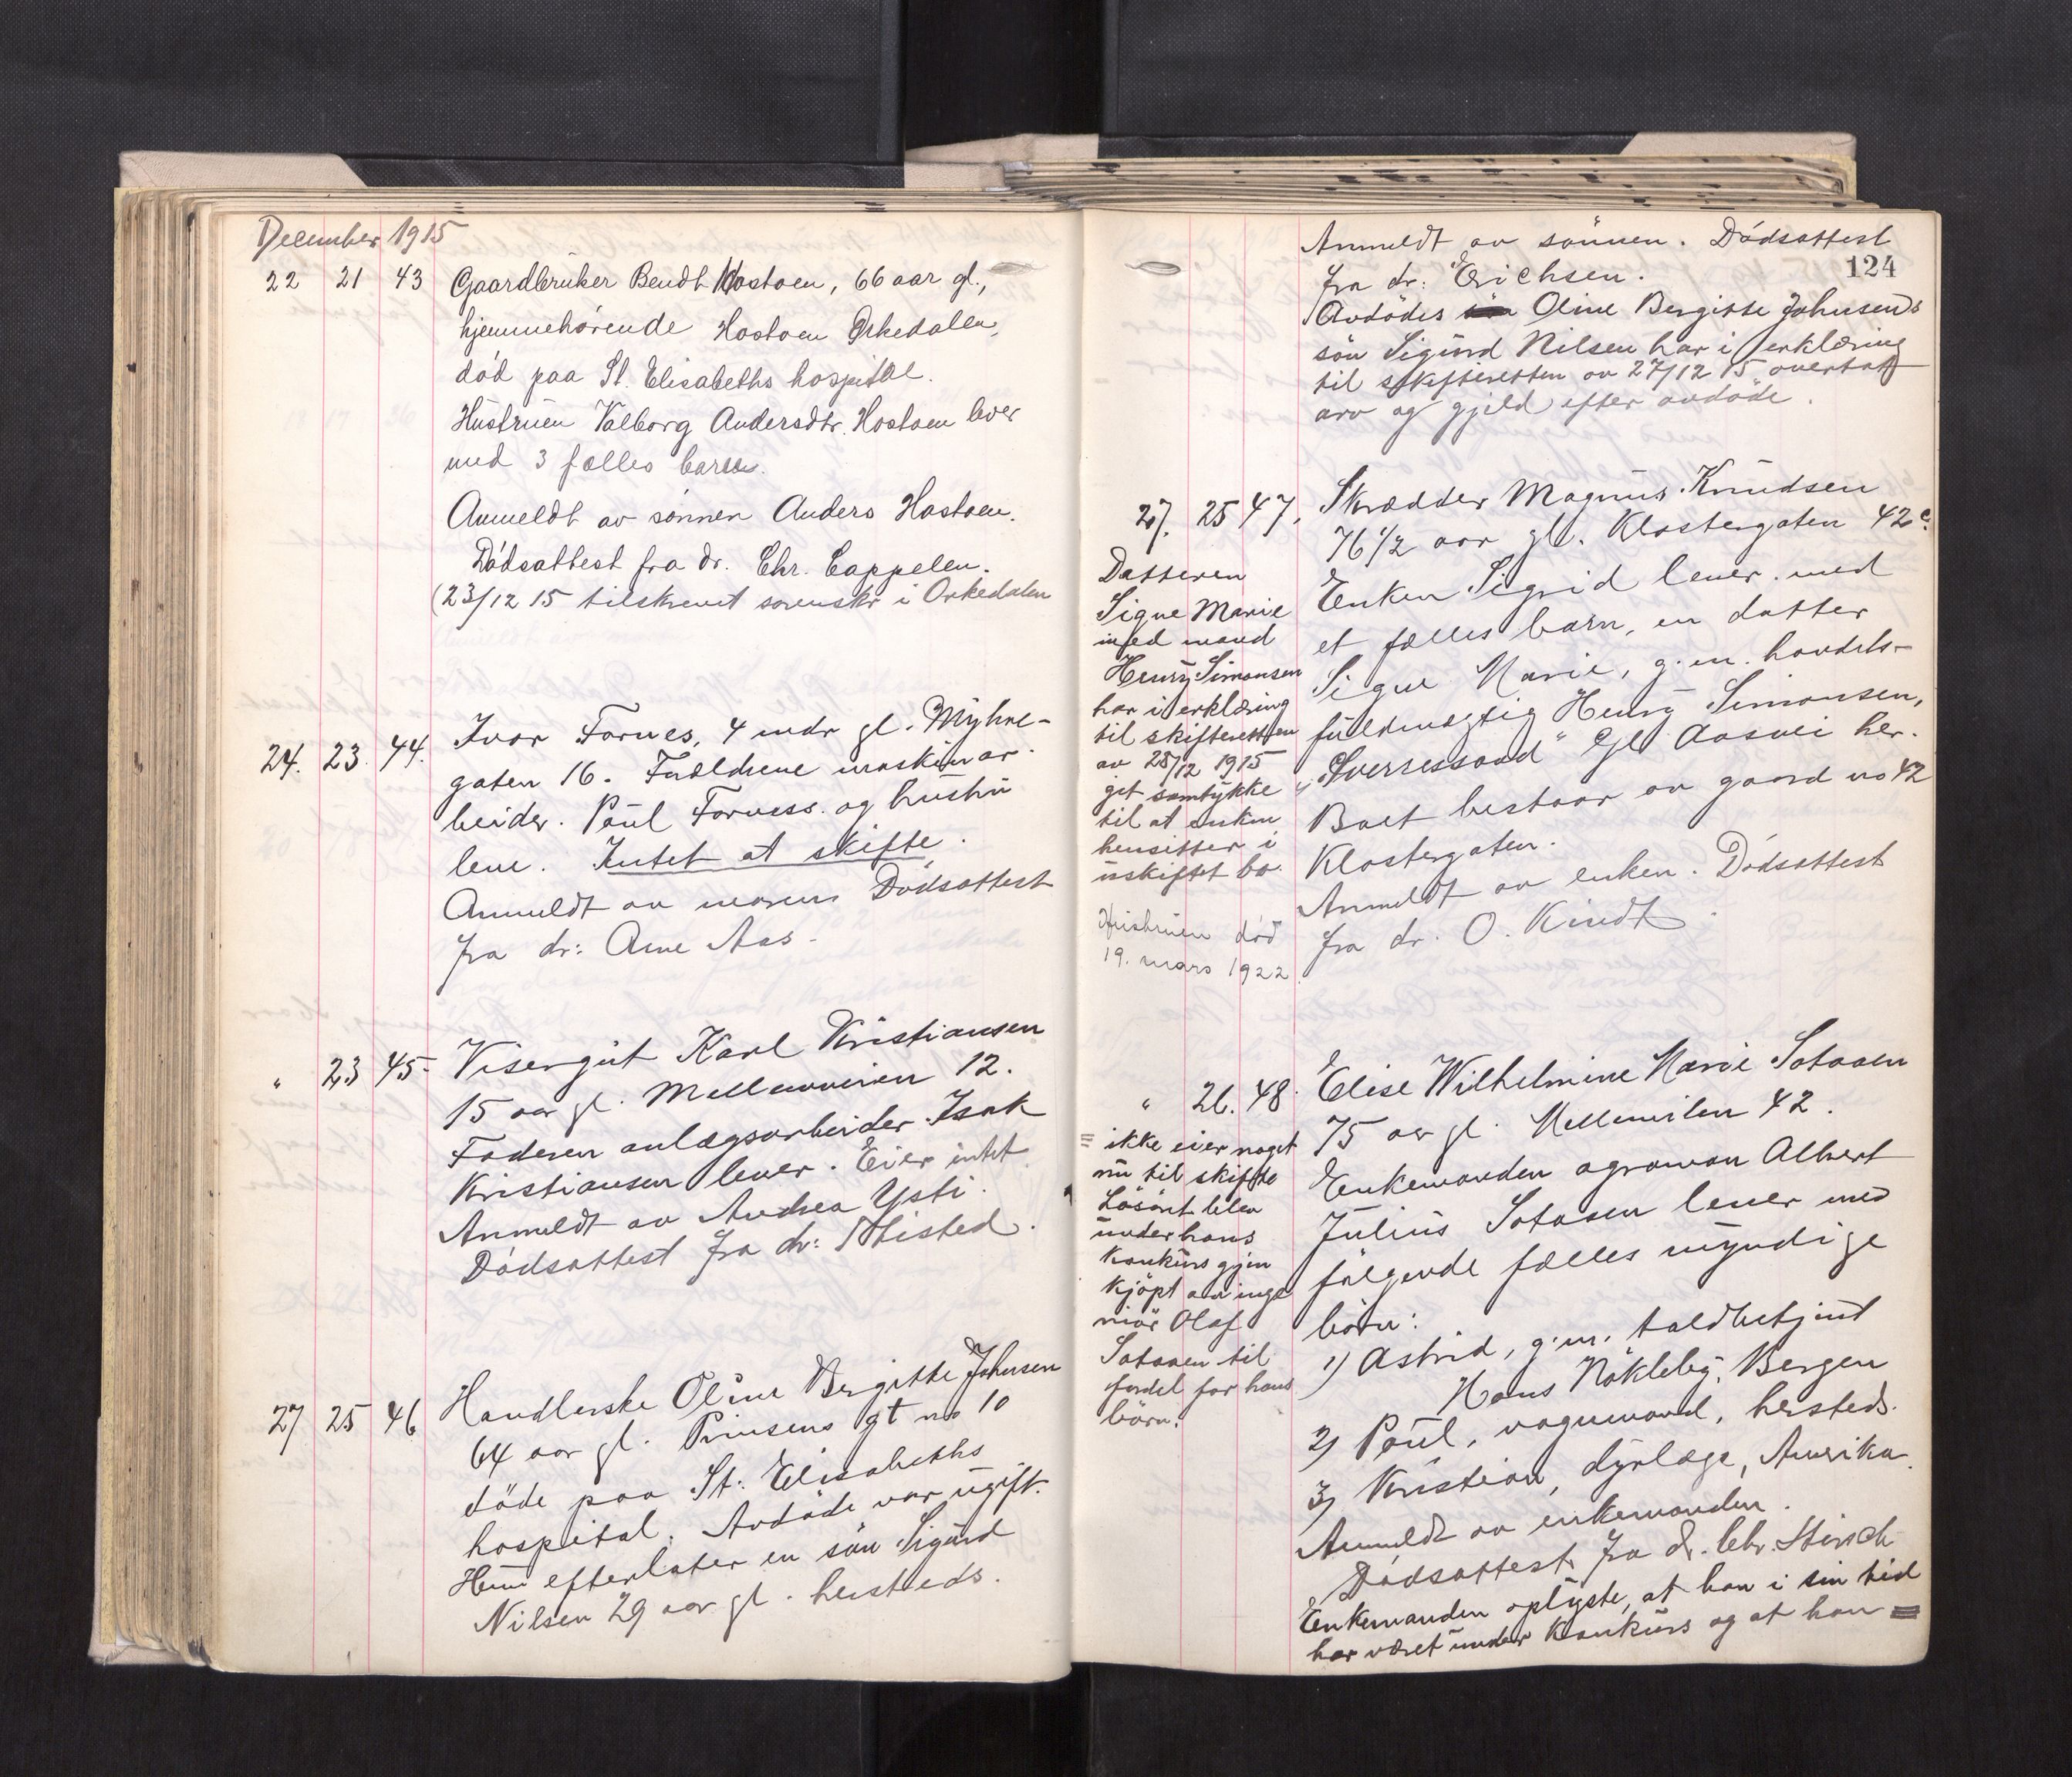 December 1915
22 21 43 Gaardbruker Bendt Hostoen, 66 aar gl.,
hjemmehørende Hostoen Orkedalen,
død paa St. Elisabeths hospital.
Hustruen Valborg Andersdtr. Hostoen lever
med 3 fælles barn.
Anmeldt av sønnen Anders Hostoen.
Dødsattest fra dr. Chr. Cappelen.
(23/12 15 tilskrevet sorenskr i Orkedalen
24. 23. 44. Ivar Fornes, 4 mdr gl. Myhre-
gaten 16. Forældrene maskinar-
beider. Paul Forness. og hustru
leve. Intet at skifte.
Anmeldt av moren. Dødsattest
fra dr: Arne Aas.
" 23 45- Visergut Karl Kristiansen
15 aar gl. Mellemveien 12.
Faderen anlægsarbeider Isak
Kristiansen lever. Eier intet.
Anmeldt av Andrea Ysti.
Dødsattest fra dr: Thisted.
27 25 46 Handlerske Oline Bergitte Johnsen
64 aar gl. Prinsens gt no 10
døde paa St: Elisabeths
hospital. Avdøde var ugift.
Hun efterlater en søn Sigurd
Nilsen 29 aar gl. hersteds.
Anmeldt av sønnen. Dødsattest
124
fra dr: Erichsen.
Avdødes Oline Bergitte Johnsens
søn Sigurd Nilsen har i erklæring
til skifteretten av 27/12 15 overtat
arv og gjeld efter avdøde.
27. 25 47, Skrædder Magnus Knudsen
76 1/2 aar gl. Klostergaten 42c.
Enken Sigrid lever med
et fælles barn, en datter
Signe Marie, g.m. handels-
fuldmægtig Henry Simonsen,
"Sverressaad" Gl. Aasvei her.
Boet bestaar av gaard no 42
Klostergaten.
Anmeldt av enken. Dødsattest
fra dr. O. Kindt.
Datteren
Signe Marie
med mand
Henry Simonsen
har i erklæring
til skifteretten
av 28/12 1915
git samtykke
til at enken
hensitter i
uskiftet bo.
Hustruen død
19. mars 1922.
" 26. 48. Elise Wilhelmine Marie Sotaaen
75 aar gl. Mellemilen 42.
Enkemanden agronom Albert
Julius Sotaaen lever med
følgende fælles myndige
børn:
1) Astrid, g.m. toldbetjent
Hans Nökleby, Bergen
2) Paul, vognmand, hersteds.
3) Kristian, dyrlæge, Amerika.
Anmeldt av enkemanden.
Dødsattest fra dr. Chr. Hirsch
Enkemanden oplyste, at han i sin tid
har været under konkurs og at han =
= ikke eier noget
nu til skifte
Løsöret blev
under hans
konkurs gjen
kjöpt av inge
niör Olaf
Sotaaen til
fordel for hans
börn.